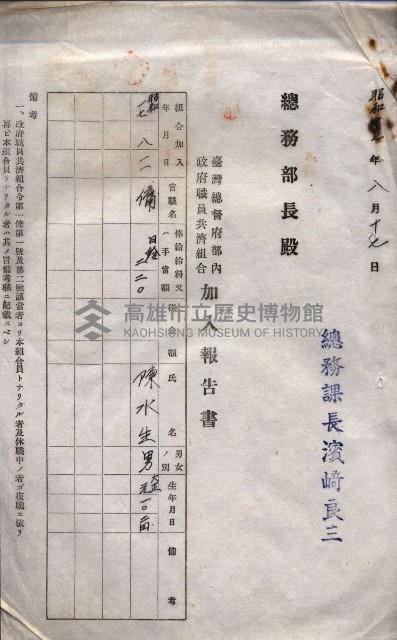 昭和十七年八月十七日
總務部長殿
總務課長濱﨑良三
臺灣總督府部內
政府職員共濟組合
加入報告書
組合加入年月日
官職名
俸給給料又ハ手當額
掛金額
氏名
男女ノ別
生年月日
備考
昭和一七、八、一一
傭
日給
二、二〇
陳水生
男
大正
元、一〇、
備考
一、政府職員共濟組合令第一條第一號及第二號該當者ヨリ本組合員トナリタル者及休職中ノ者ガ復職ニ依リ
再ビ本組合員トナリタル者ハ其ノ旨備考欄ニ記載スベシ
高雄市立歷史博物館
KAOHSIUNG MUSEUM OF HISTORY